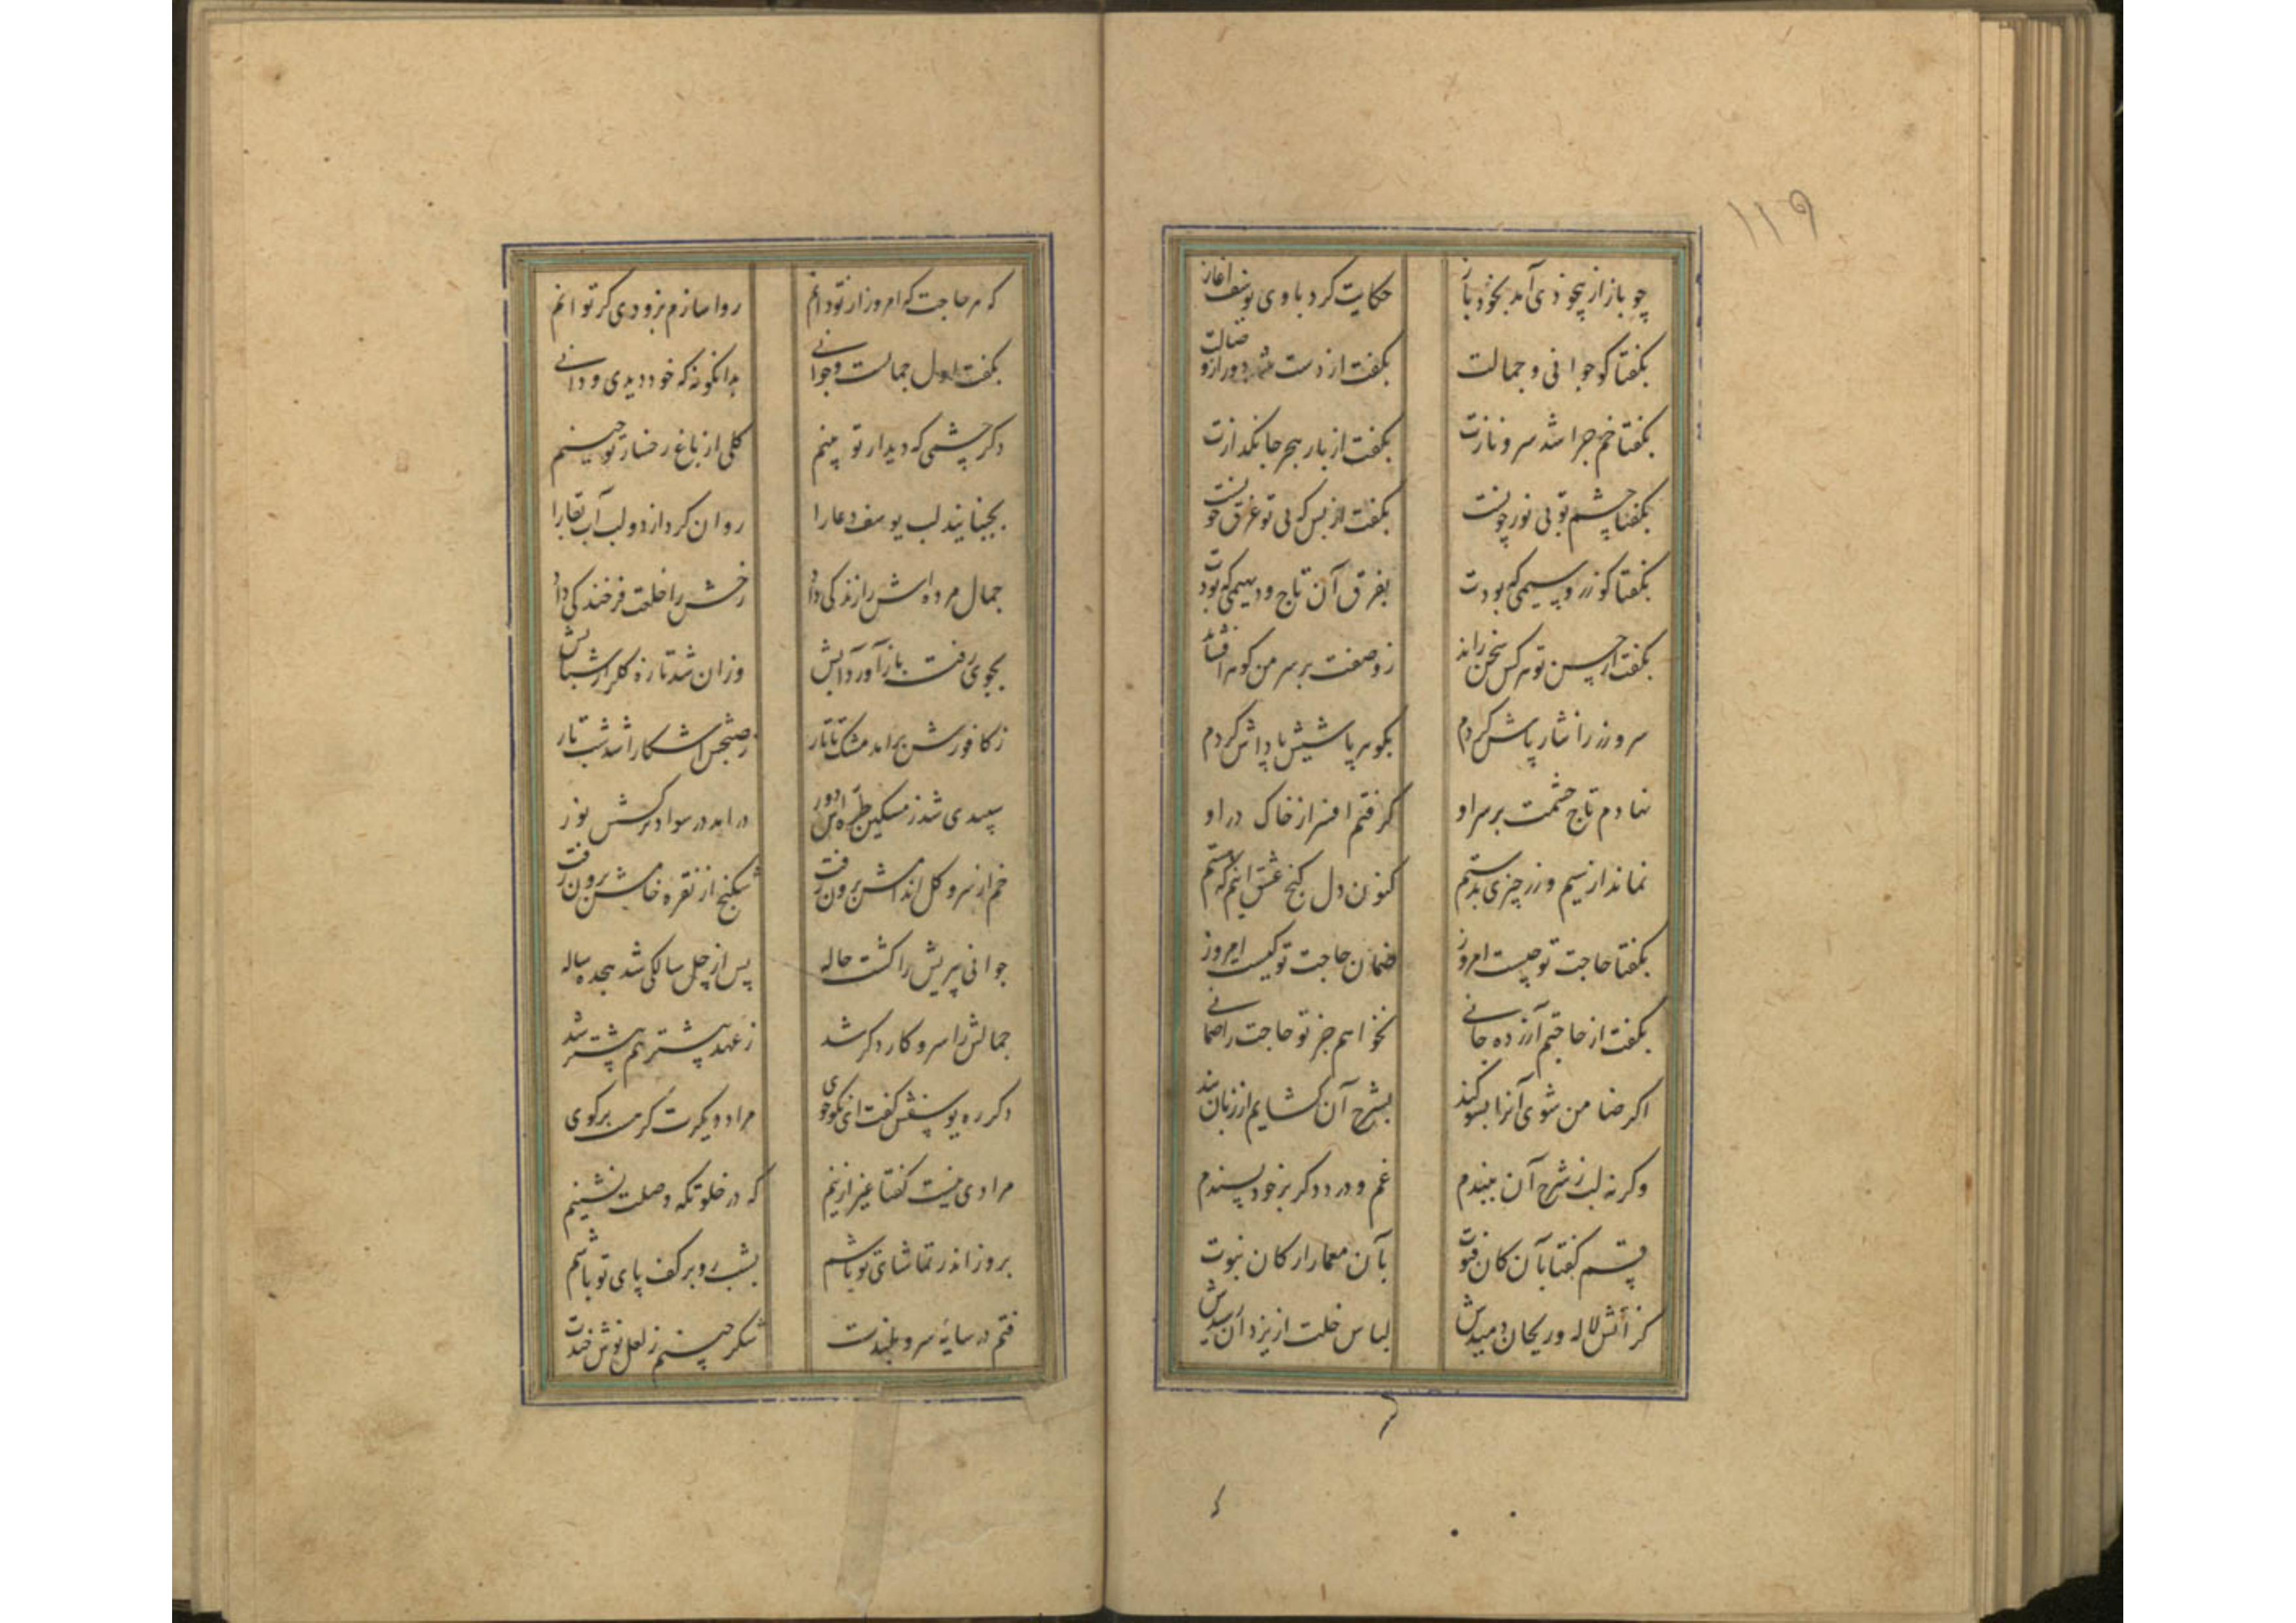 ۱۱۹
چو باز از بیخودی آمد بخود باز حکایت کرد با وی یوسف آغاز
بگفتا کو جوانی و جمالت بگفت از دست شد دور از وصالت
بگفتا خم چرا شد سرو نازت بگفت از بار هجر جانگدازت
بگفتا چشم تو بی نور چونست بگفت از بس که بی تو غرق خونست
بگفتا کو زر و سیمی که بودت بفرق آن تاج و دیهیمی که بودت
بگفت از حسن تو هر کس سخن راند ز وصفت بر سر من گوهر افشاند
سر و زر را نثار پاش کردم بگوهر پاشیش پاداش کردم
نهادم تاج حشمت بر سر او گرفتم افسر از خاک در او
نماند از سیم و زر چیزی بدستم کنون دل گنج عشق اینم که هستم
بگفتا حاجت تو چیست امروز ضمان حاجت تو کیست امروز
بگفت از حاجتم آزرده جانی نخواهم جز تو حاجت را ضمانی
اگر ضامن شوی آنرا بسوگند بشرح آن گشایم از زبان بند
وگر نه لب ز شرح آن ببندم غم و درد دگر بر خود پسندم
قسم گفتا بآن کان فتوت بآن معمار ارکان نبوت
کز آتش لاله و ریحان دمیدش لباس خلت از یزدان رسیدش
که هر حاجت که امروز از تو دانم روا سازم بزودی گر توانم
بگفت اول جمالست و جوانی بدانگونه که خود دیدی و دانی
دگر چشمی که دیدار تو بینم گلی از باغ رخسار تو چینم
بجنبانید لب یوسف دعا را روان کرد از دو لب آب بقا را
جمال مرده اش را زندگی داد رخش را خلعت فرخندگی داد
بجوی رفت باز آورد آبش وزان شد تازه گلزار شبابش
ز کافورش برآمد مشک تاتار ز صبحش آشکارا شد شب تار
سپیدی شد ز مشکین طره اش دور درآمد در سواد نرگسش نور
خم از سرو گل اندامش برون رفت شکنج از نقره خامش برون رفت
جوانی پیریش را گشت حاله پس از چل سالگی شد هجده ساله
جمالش را سر و کار دگر شد ز عهد پیشتر هم پیشتر شد
دگر ره یوسفش گفت ای نکوخوی مراد دیگرت گر هست برگوی
مرادی نیست گفتا غیر ازینم که در خلوتگه وصلت نشینم
بروز اندر تماشای تو باشم بشب رو بر کف پای تو باشم
فتم در سایهٔ سرو بلندت شکر چینم ز لعل نوش خندت